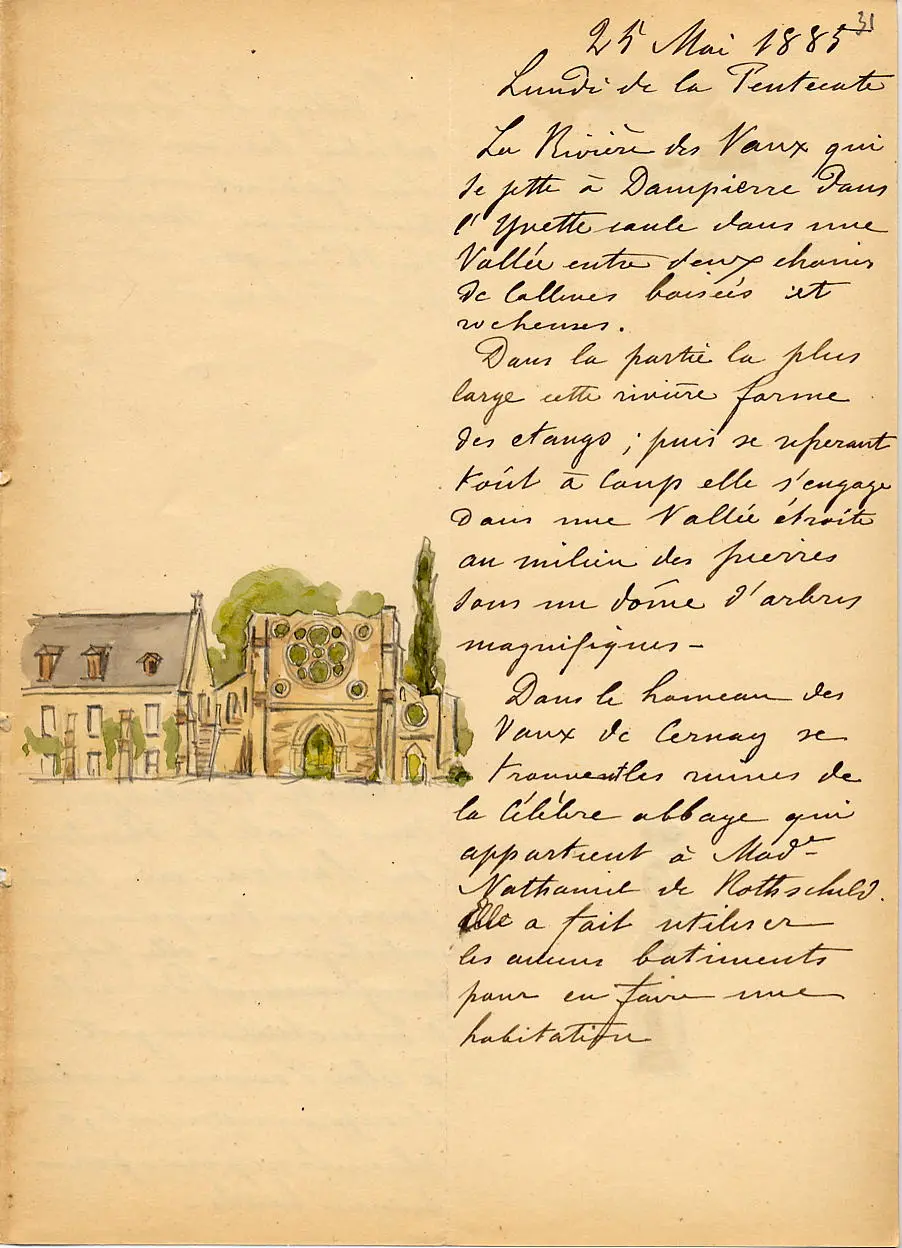 31
25 Mai 1885
Lundi de la Pentecote
La Rivière des Vaux qui
se jette à Dampierre Dans
l'Yvette coule dans une
Vallée entre deux chaines
de Collines boisées et
rocheuses.
Dans la partie la plus
large cette rivière forme
des etangs ; puis se
tout à coup elle s'engage
dans une Vallée étroite
au milieu des pierres
sous un dôme d'arbres
magnifiques -
Dans le hameau des
Vaux de Cernay se
trouvent les ruines de
la Célèbre abbaye qui
appartient à Made
Nathaniel de Rothschild.
Elle a fait utiliser
les anciens batiments
pour en faire une
habitation